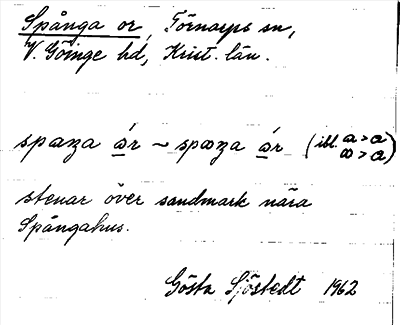 Spånga or, Törnarps sn,
V. Göinge hd, Krist. län.
spaŋa ɑ̲r ~ spaŋa ɑ̲r (ibl. a > a
stenar över sandmark nära
Spångahus.
Gösta Sjöstedt 1962